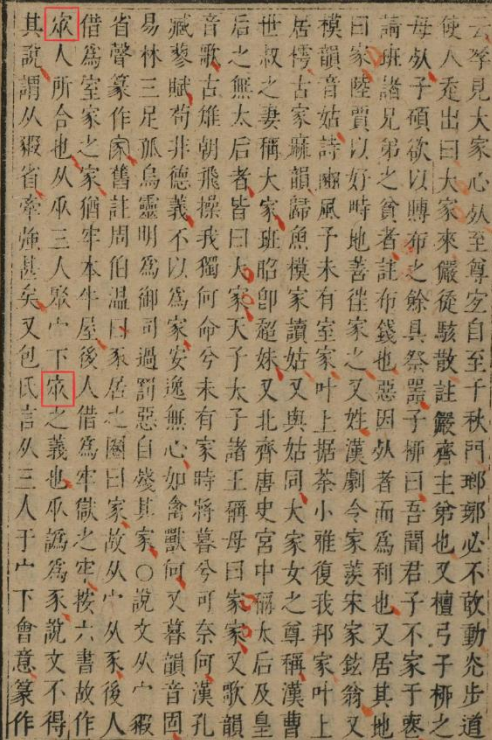 云李見大家心死至尊宜自至千秋門瑯琊必不敢動光步道
使人走出曰大家來儼徒駭散註嚴齊主弟也又檀弓子栁之
母死子碩欲以賻布之餘具祭器子栁曰吾聞君子不家于喪
請班諸兄弟之貧者註布錢也惡因死者而爲利也又居其地
曰家陸賈以好畤地善徃家之又姓漢劇令家羨宋家鉉翁又
模韻音姑詩豳風予未有室家叶上据荼小雅復我邦家叶上
居樗古家麻韻歸魚模家讀姑又與姑同大家女之尊稱漢曹
世叔之妻稱大家班昭卽超妹又北齊唐史宮中稱太后及皇
后之無太后者皆曰大家天子太子諸王稱母曰家家又歌韻
音歌古雉朝飛操我獨何命兮未有家時將暮兮可奈何漢孔
臧蓼賦苟非德義不以爲家安逸無心如禽獸何又暮韻音固
易林三足孤烏靈明爲御司過罰惡自殘其家○說文从宀豭
省聲篆作舊註周伯温曰豕居之圈曰家故从宀从豕後人
借爲室家之家猶牢本牛屋後人借爲牢獄之牢按六書故作
人所合也从㐺三人聚宀下之義也㐺譌爲豕說文不得
其說謂从豭省牽強甚矣又包氏言从三人于宀下會意篆作